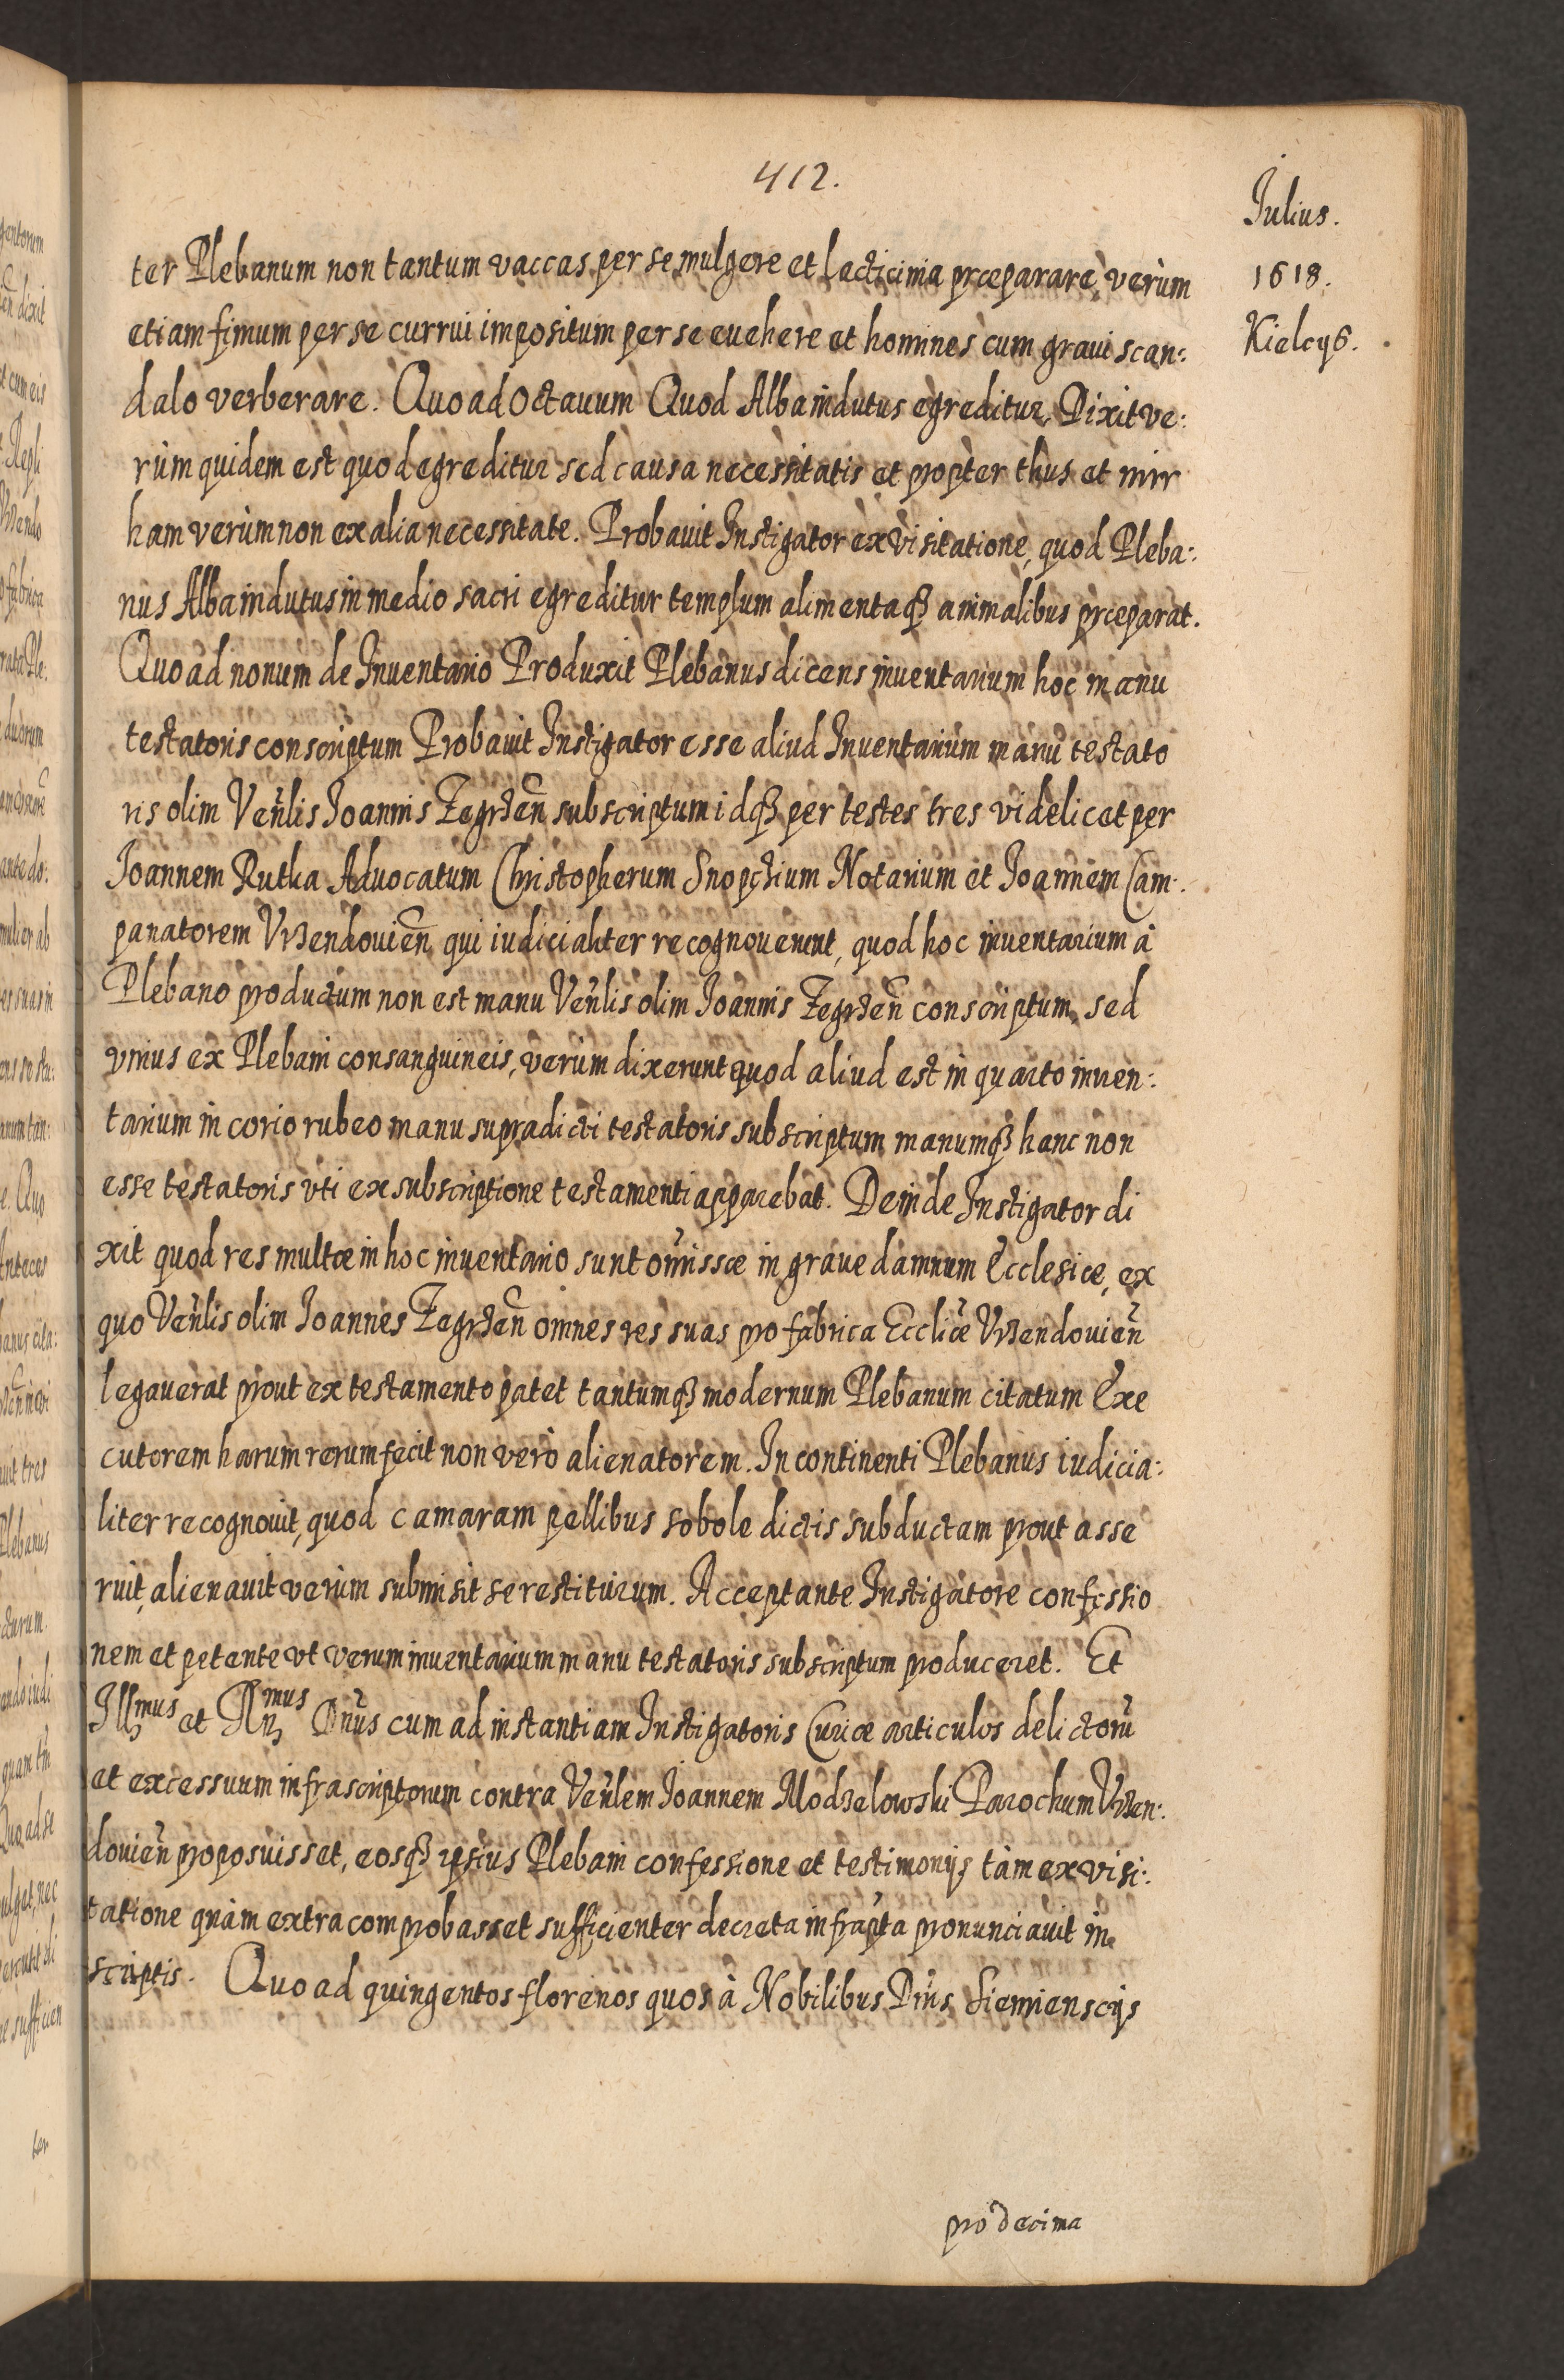 412.
Julius.
1618.
Kielcys.
ter Plebanum non tantum vaccas per se mulgere et lacticinia præparare, verùm
etiam fimum per se currui impositum per se euehere et homines cum graui scan:
dalo verberare. Quo ad Octauum Quod Alba indutus egreditur, Dixit ve:
rùm quidem est quod egreditur sed causa necessitatis et propter thus et mirr
ham verùm non ex alia necessitate. Probauit Instigator ex visitatione, quod Pleba:
nus Alba indutus in medio sacri egreditur templum alimentaqȝ animalibus præparat.
Quo ad nonum de Inuentario Produxit Plebanus dicens inuentarium hoc manu
testatoris conscriptum Probauit Instigator esse aliud Inuentarium manu testato
ris olim Veñlis Joannis Zegrzeñ subscriptum idqȝ per testes tres videlicet per
Joannem Rutka Aduocatum Christopherum Snopczium Notarium et Joannem Cam:
panatorem Vrzendouieñ qui iudicialiter recognouerunt, quod hoc inuentarium à
Plebano productum non est manu Veñlis olim Joannis Zegrzeñ conscriptum, sed
vnius ex Plebani consanguineis, verùm dixerunt quod aliud est in quarto inuen:
tarium in corio rubeo manu supradicti testatoris subscriptum manumqȝ hanc non
esse testatoris vti ex subscriptione testamenti apparebat. Deinde Instigator di
xit quod res multæ in hoc inuentario sunt omissæ in graue damnum Ecclesiæ, ex
quo Veñlis olim Joannes Zegrzeñ omnes res suas pro fabrica Eccliæ Vrzendouieñ
legauerat prout ex testamento patet tantumqȝ modernum Plebanum citatum Exe
cutorem harum rerum fecit non verò alienatorem. In continenti Plebanus iudicia:
liter recognouit, quod camaram pellibus sobole dictis subductam prout asse
ruit, alienauit verùm submisit se restiturum. Acceptante Instigatore confessio
nem et petente vt verum inuentarium manu testatoris subscriptum produceret. Et
Illȝmus et Rȝmus Dñus cum ad instantiam Instigatoris Curiæ articulos delictorũ
et excessuum infrascriptorum contra Veñlem Joannem Modzelowski Parochum Vrzen:
douieñ proposuisset, eosqȝ ipsius Plebani confessione et testimonijs tàm ex visi:
tatione quàm extra comprobasset sufficienter decreta infrapta pronunciauit in
scriptis. Quo ad quingentos florenos quos à Nobilibus Dñis Siemienscijs
pro decima